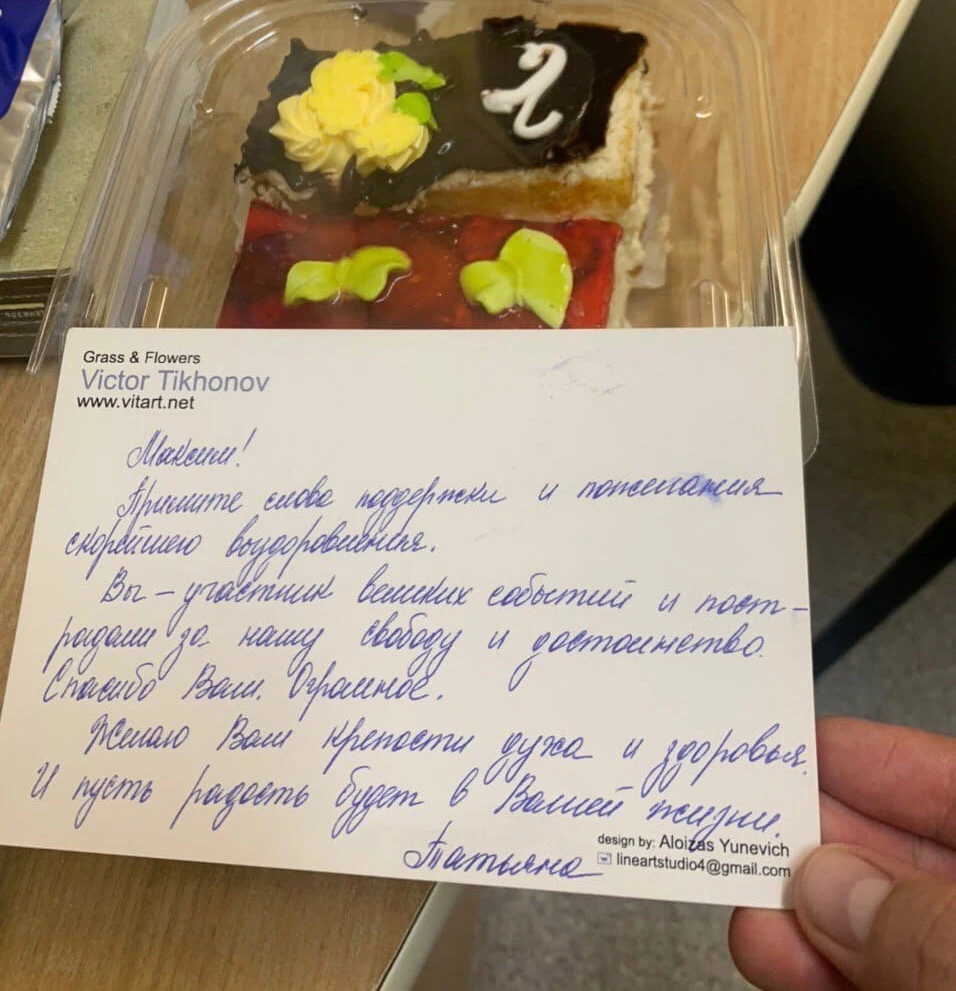 Grass & Flowers
Victor Tikhonov
www.vitart.net
Максим!
Примите слова поддержки и пожелания
скорейшего выздоровления.
Вы – участник великих событий и пост-
радали за нашу свободу и достоинство.
Спасибо Вам. Огромное.
Желаю Вам крепости духа и здоровья.
И пусть радость будет в Вашей жизни.
Татьяна
design by: Aloizas Yunevich
lineartstudio4@gmail.com